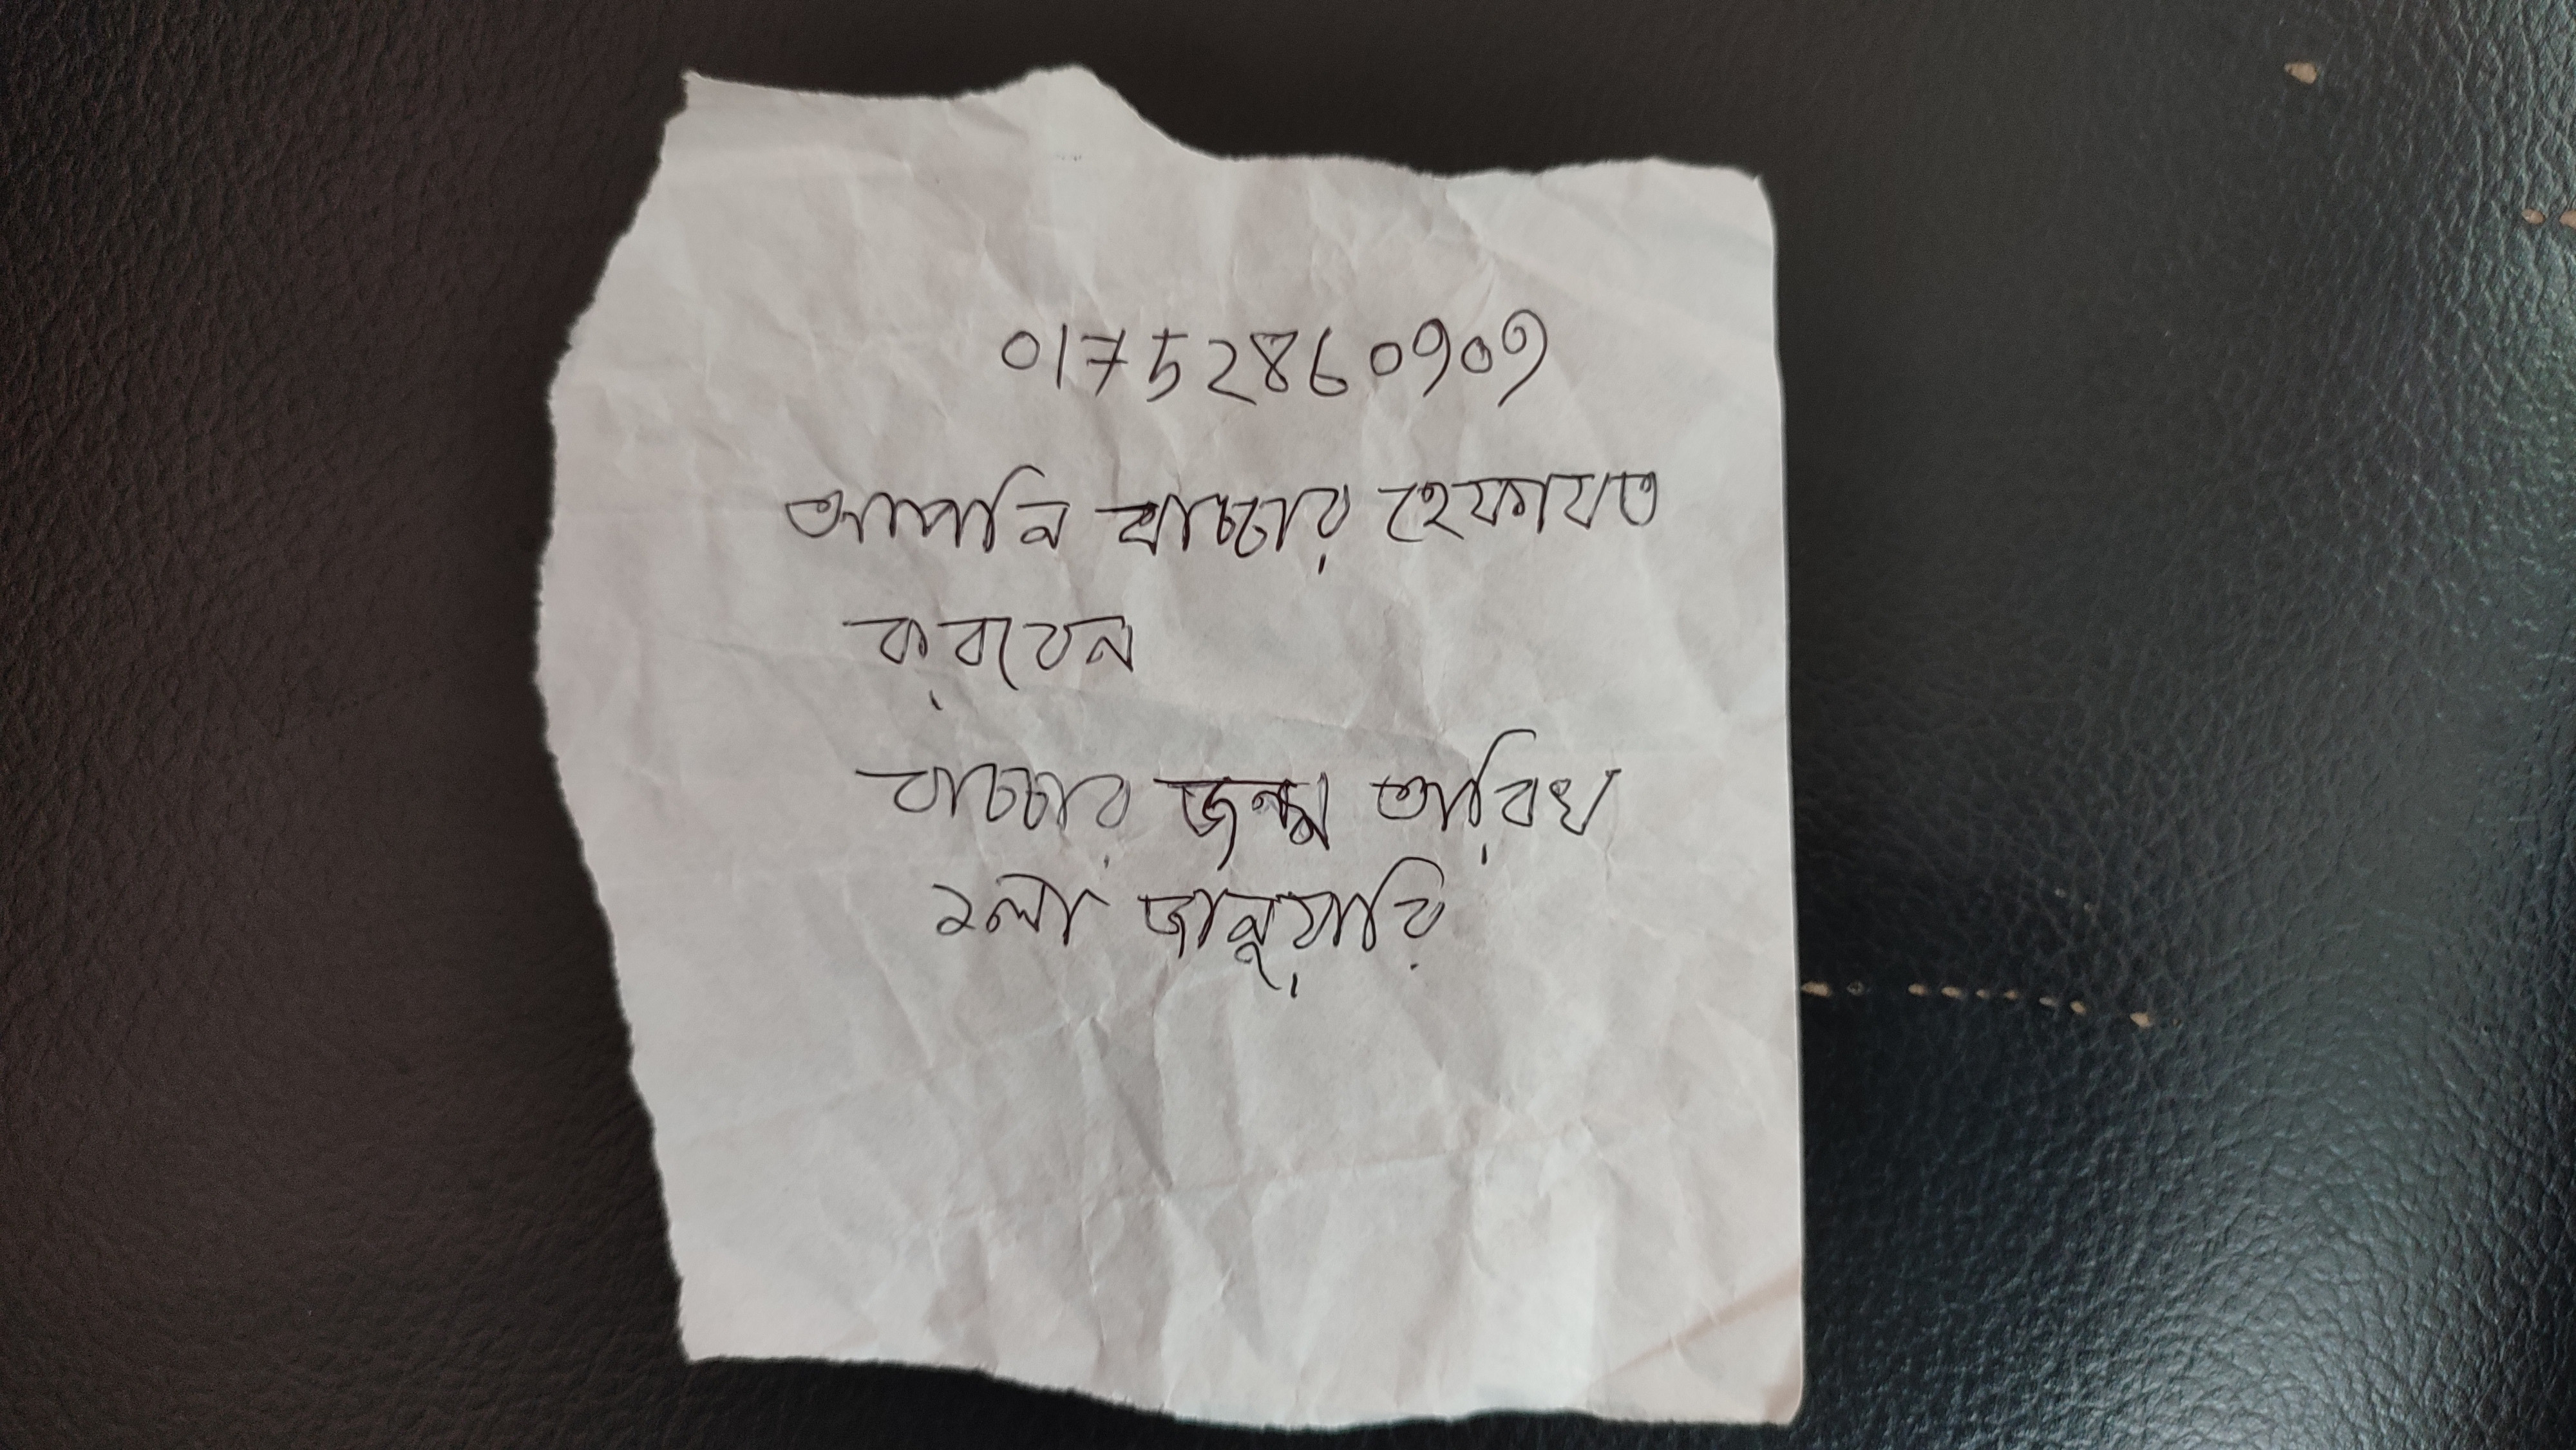 01752860909
আপনি বাচ্চার হেফাযত
করবেন
বাচ্চার জন্ম তারিখ
১লা জানুয়ারি